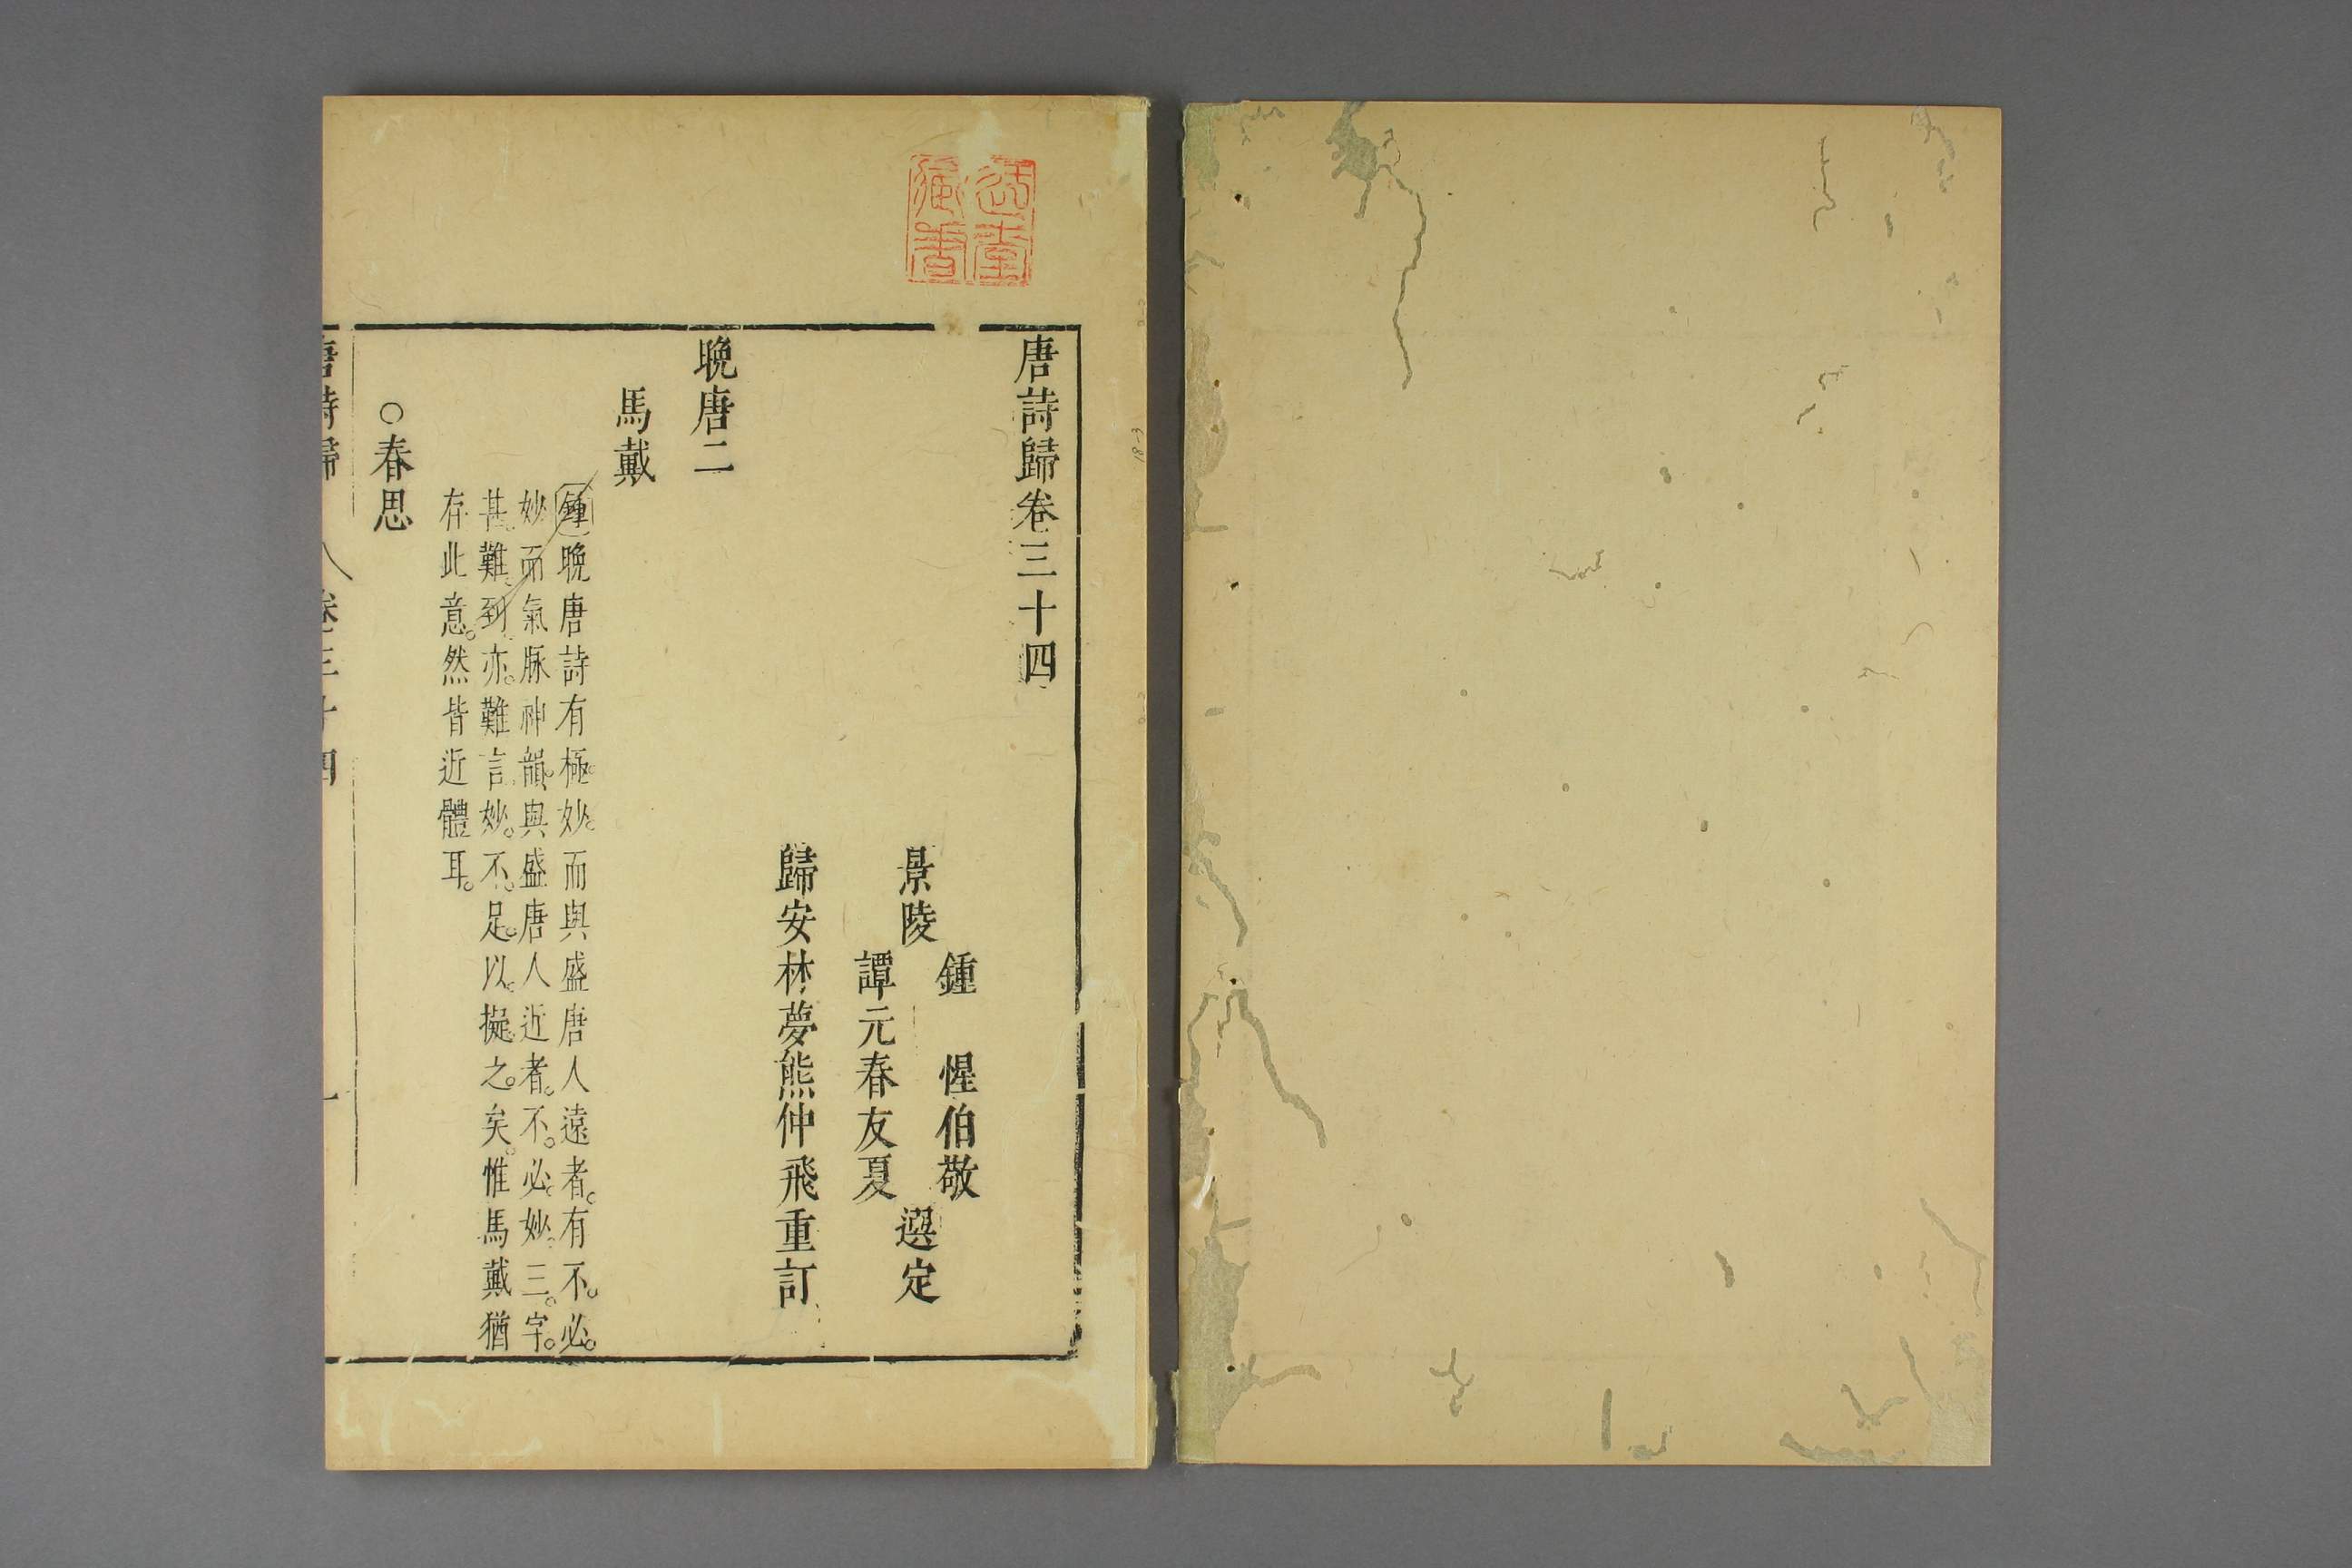 唐詩歸卷三十四
鍾惺伯敬
景陵
選定
譚元春友夏
歸安林夢熊仲飛重訂
晚唐二
馬戴
鍾晚唐詩有極妙而與盛唐人遠者有不必
妙而氣脉神韻與盛唐人近者不必妙三字
甚難到亦難言妙不足以擬之矣惟馬戴猶
存此意然皆近體耳
○春思
唐詩歸 卷三十四 一